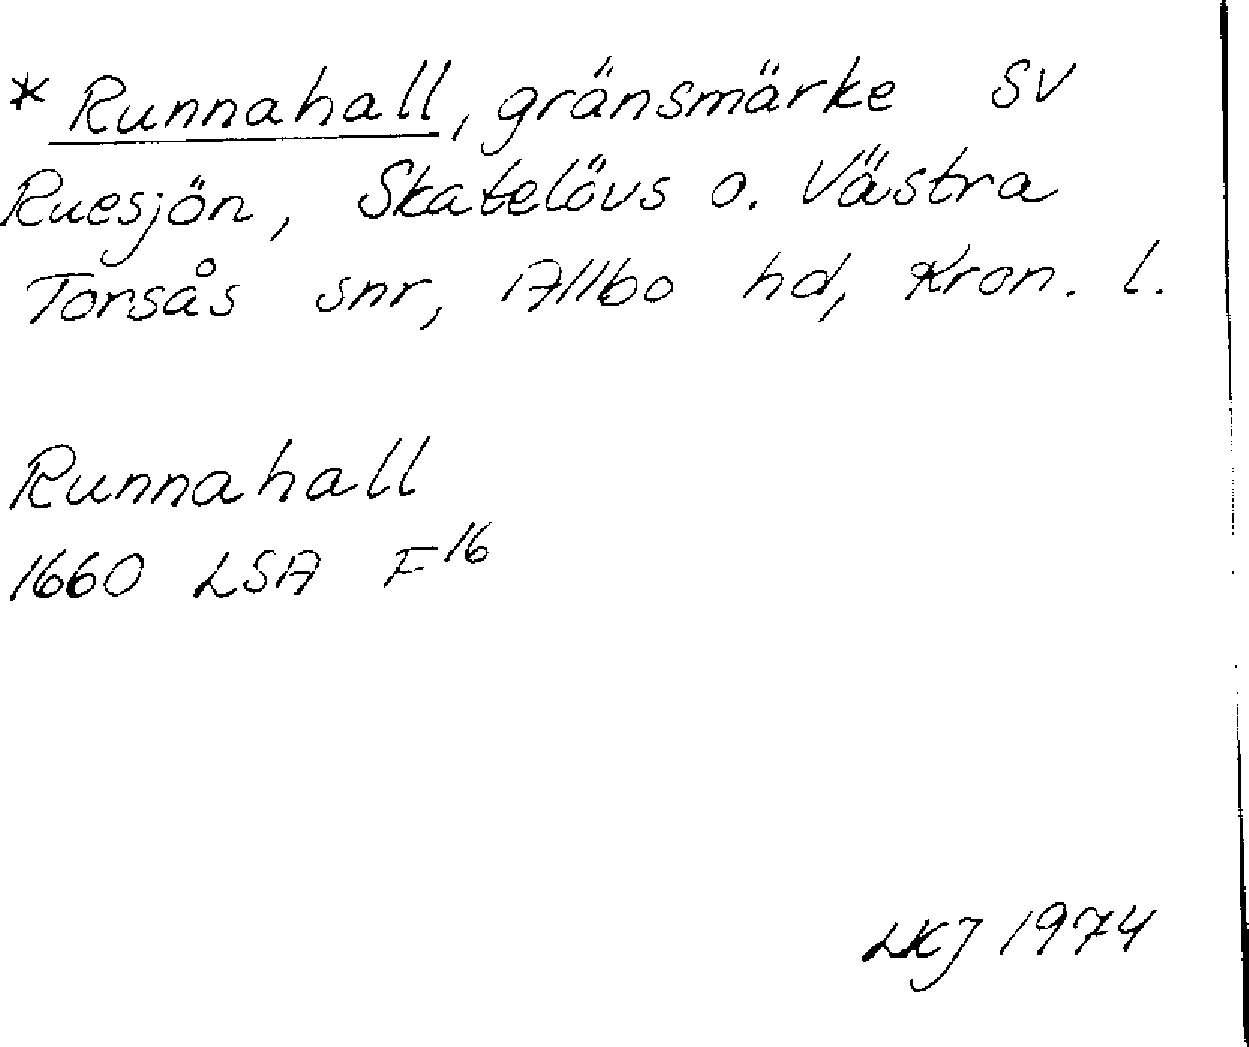 * Runnahall, gränsmärke SV
Ruesjön, Skatelövs o. Västra
Torsås snr, Allbo hd, Kron. l.
Runnahall
1660 LSA F16
LKJ 1974